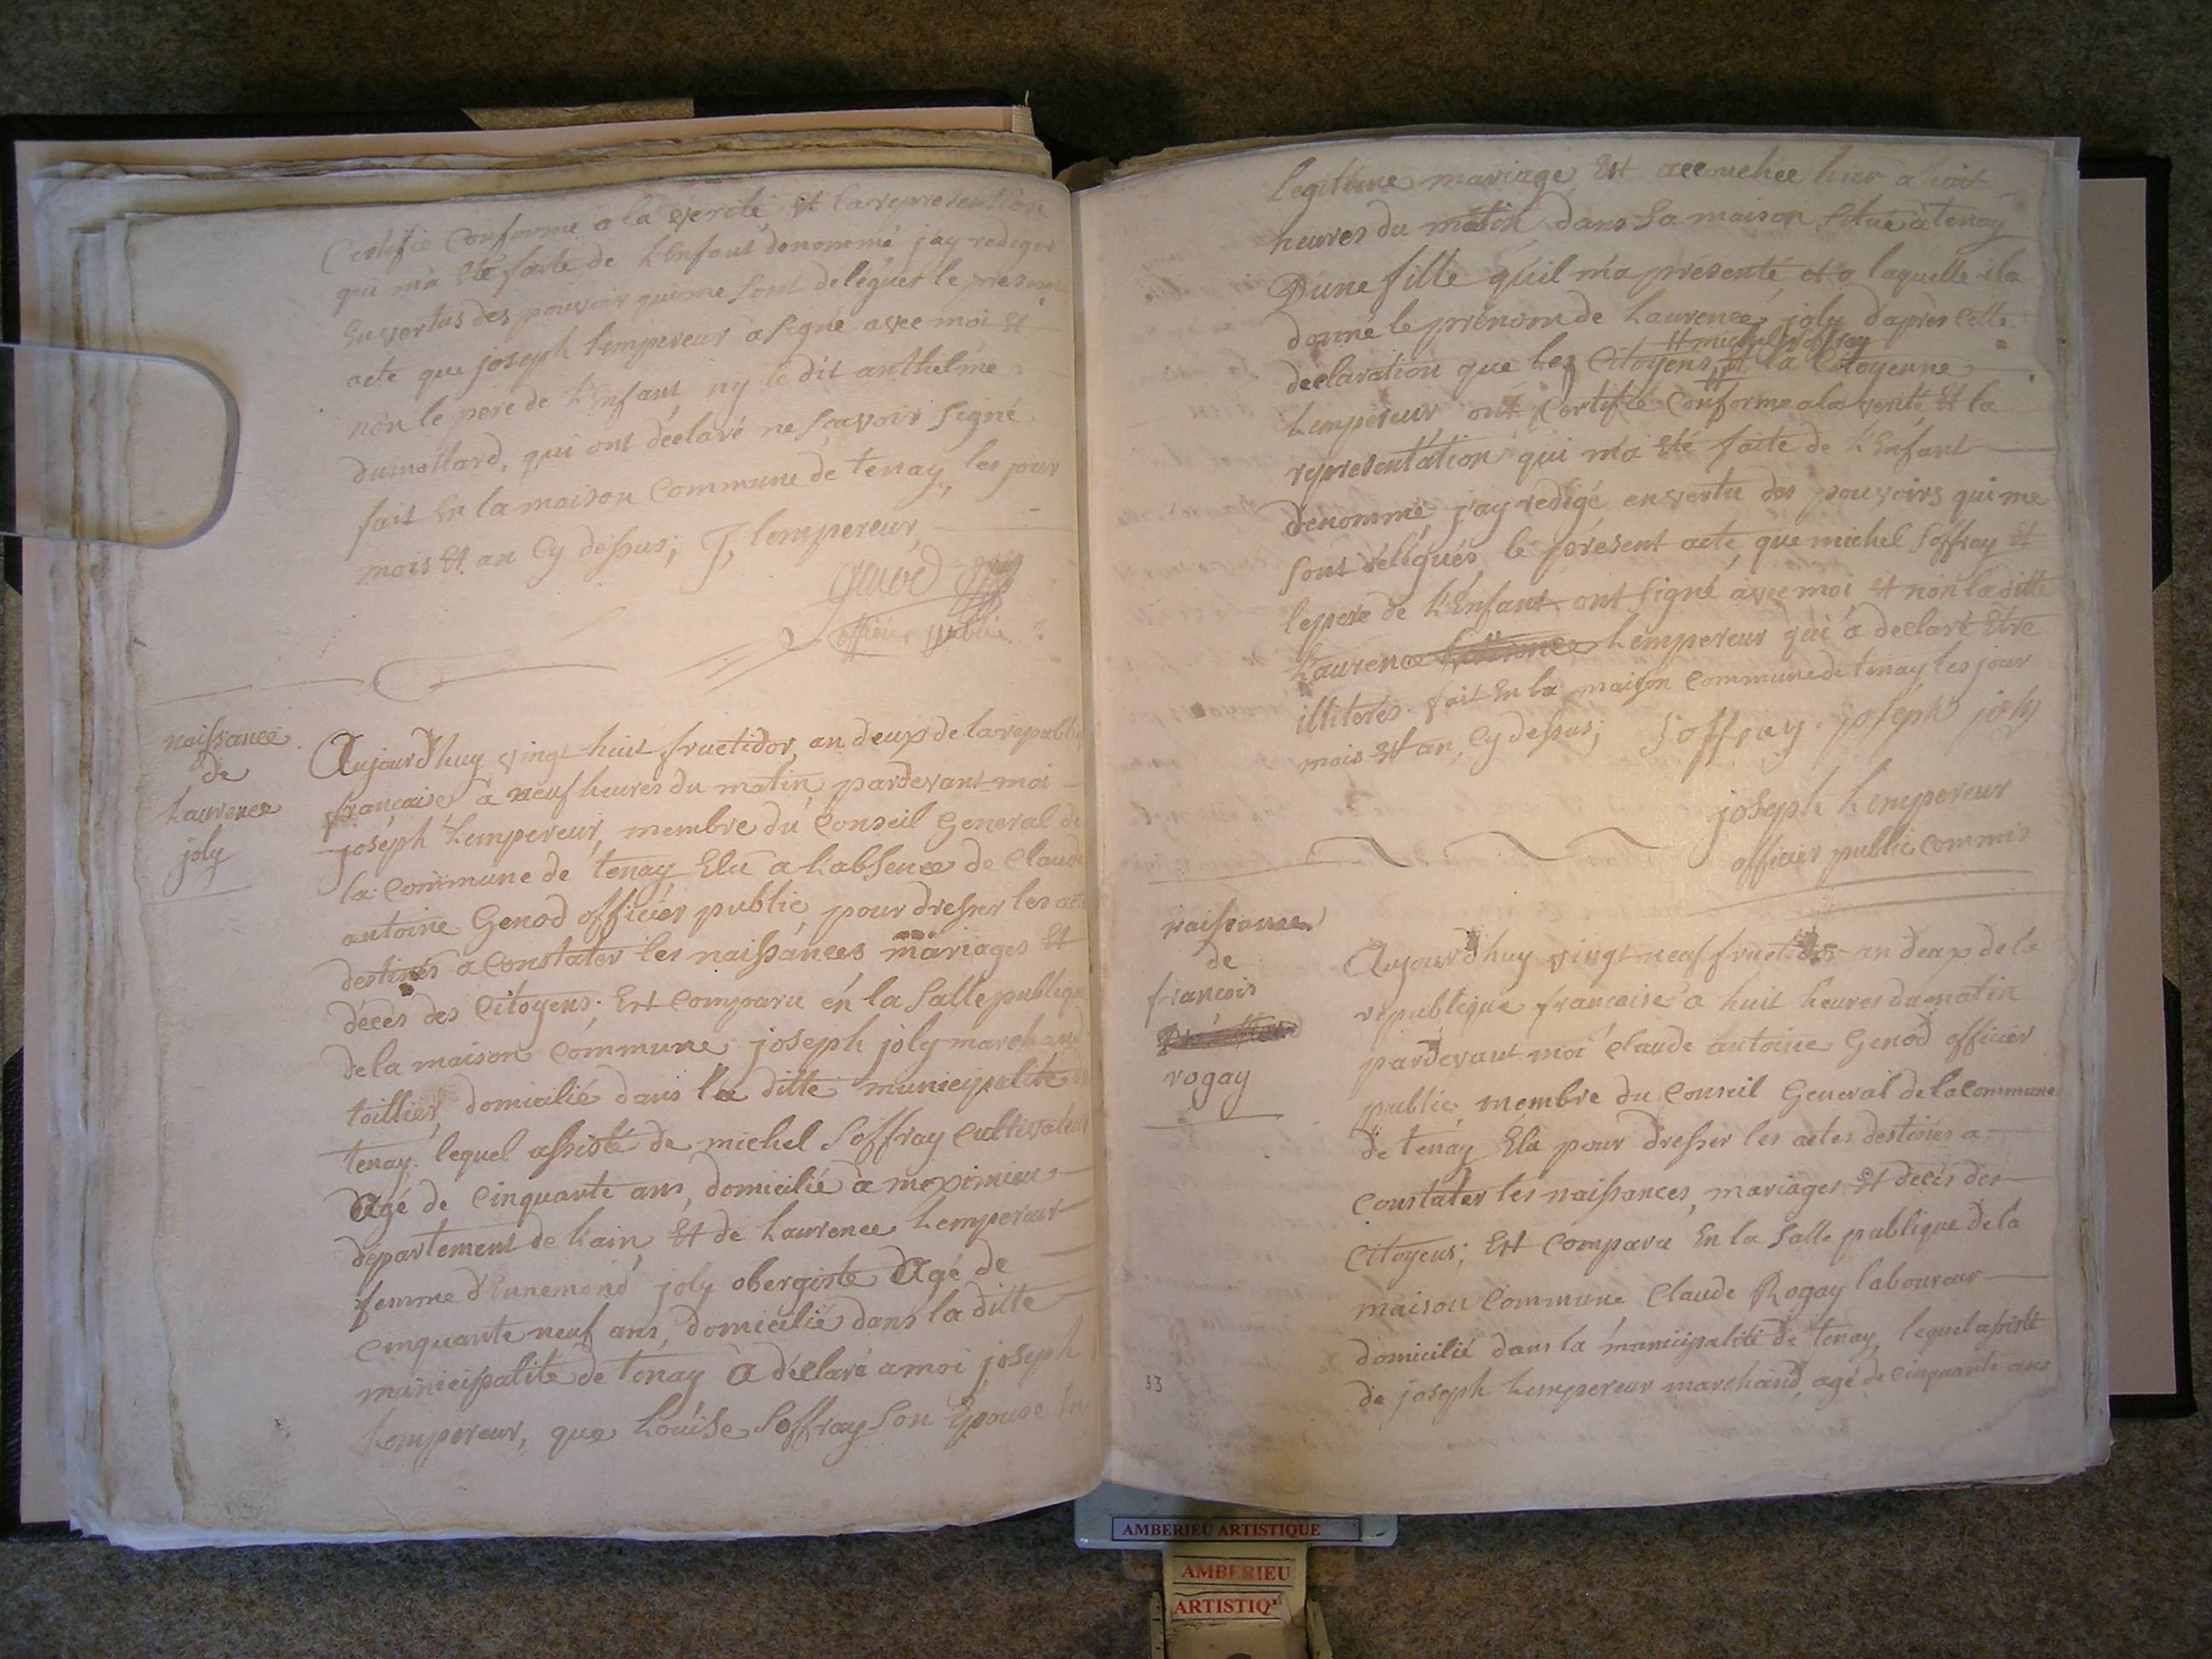 Certifié conforme a la verité Et la representation
qui m'a Eté faite de L'Enfant denommé j'ay rediger
En vertus des pouvoir qui me sont deléguér le présent
acte que joseph Lempereur a signé avec moi Et
non le pere de L'Enfant ny le dit anthelme
dumollard, qui ont déclaré ne sçavoir signé
fait En la maison Commune de tenay, les jour
mois Et an Cy dessus; J, lempereur,
Genod
officier public
naissance
de
Laurence
joly
Aujourd'huy vingt huit fructidor, an deux de la republi
francaise a neuf heures du matin pardevant moi
joseph Lempereur, membre du Conseil General de
la Commune de tenay Elu a l'absence de Claude
antoine Genod officier public, pour dresser les
destinés a Constater les naissances mariages Et
décès des Citoyens; Est comparu én la Salle publique
de la maison Commune joseph joly marchand
toillier, domicilié dans la ditte municipalité
tenay, lequel assisté de michel Soffray Cultivateur
Agé de Cinquante ans, domicilié a meximieu
département de Lain, Et de Laurence Lempereur
femme d'Eunemond joly obergiste Agé de
Cinquante neuf ans, domicilié dans la ditte
municipalité de tenay A déclaré a moi joseph
Lempereur, que Louise Soffray Son Epouse En
legitime mariage Est accouchée hier a huit
heures du matin dans Sa maison Situé a tenay
D'une fille qu'il m'a présenté et a laquelle il a
donné le prénom de Laurence joly d'après Cette
H michel Soffray
declaration que les Citoyens, Et la Citoyenne
Lempereur ont Certifié Conforme a la verité Et la
representation qui m'a Eté faite de L'Enfant
denommé, j'ay redigé en vertu des pouvoirs qui me
sont délégués, le présent acte, que michel Soffray Et
le pere de L'Enfant ont signé avec moi Et non la ditte
Laurence Lempereur qui a declaré Etre
illiterés. fait En la maison Commune de tenay les jour
mois Et an, Cy dessus; Soffray. joseph joly
joseph Lempereur
officier public Commis
naissance
de
francois
rogay
Aujourd'huy vingt neuf fructidor an deux de la
republique francaise a huit heures du matin
pardevant moi Claude antoine Genod officier
public, membre du Conseil General de la Commune
de tenay Elu pour dresser les actes destinés a
Constater les naissances, mariages Et décés des
Citoyens; Est Comparu En la Salle publique de la
maison Commune Claude Rogay laboureur
domicilié dans la municipalité de tenay, lequel assisté
de joseph Lempereur marchand, agé de cinquante ans
33
AMBERIEU ARTISTIQUE
AMBERIEU
ARTISTIQU